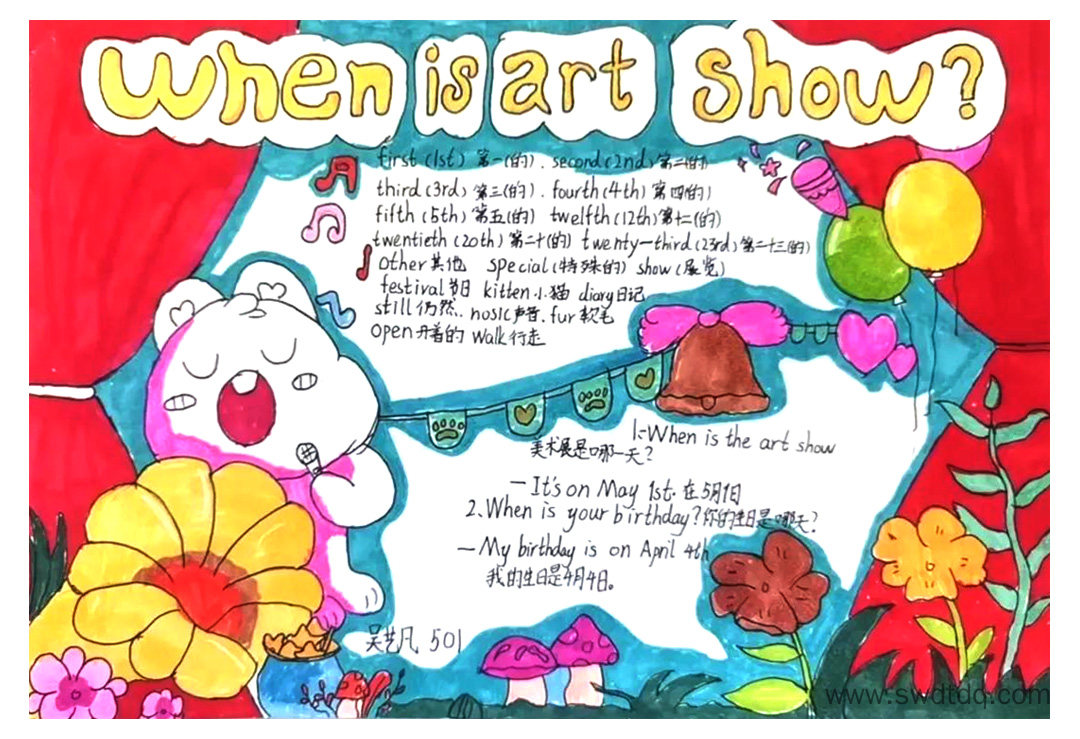 When is art show?
first (1st) 第一(的). second (2nd) 第二(的)
third (3rd) 第三(的). fourth (4th) 第四(的)
fifth (5th) 第五(的) twelfth (12th) 第十二(的)
twentieth (20th) 第二十(的) twenty-third (23rd) 第二十三(的)
other 其他 special (特殊的) show (展览)
festival 节日 kitten 小猫 diary 日记
still 仍然.. nosic 声音. fur 软毛
open 开着的 walk 行走
1.-When is the art show
美术展是哪一天?
-It's on May 1st. 在5月1日
2.When is your birthday? 你的生日是哪天?
-My birthday is on April 4th
我的生日是4月4日。
吴艺凡 501
www.swdtdq.com